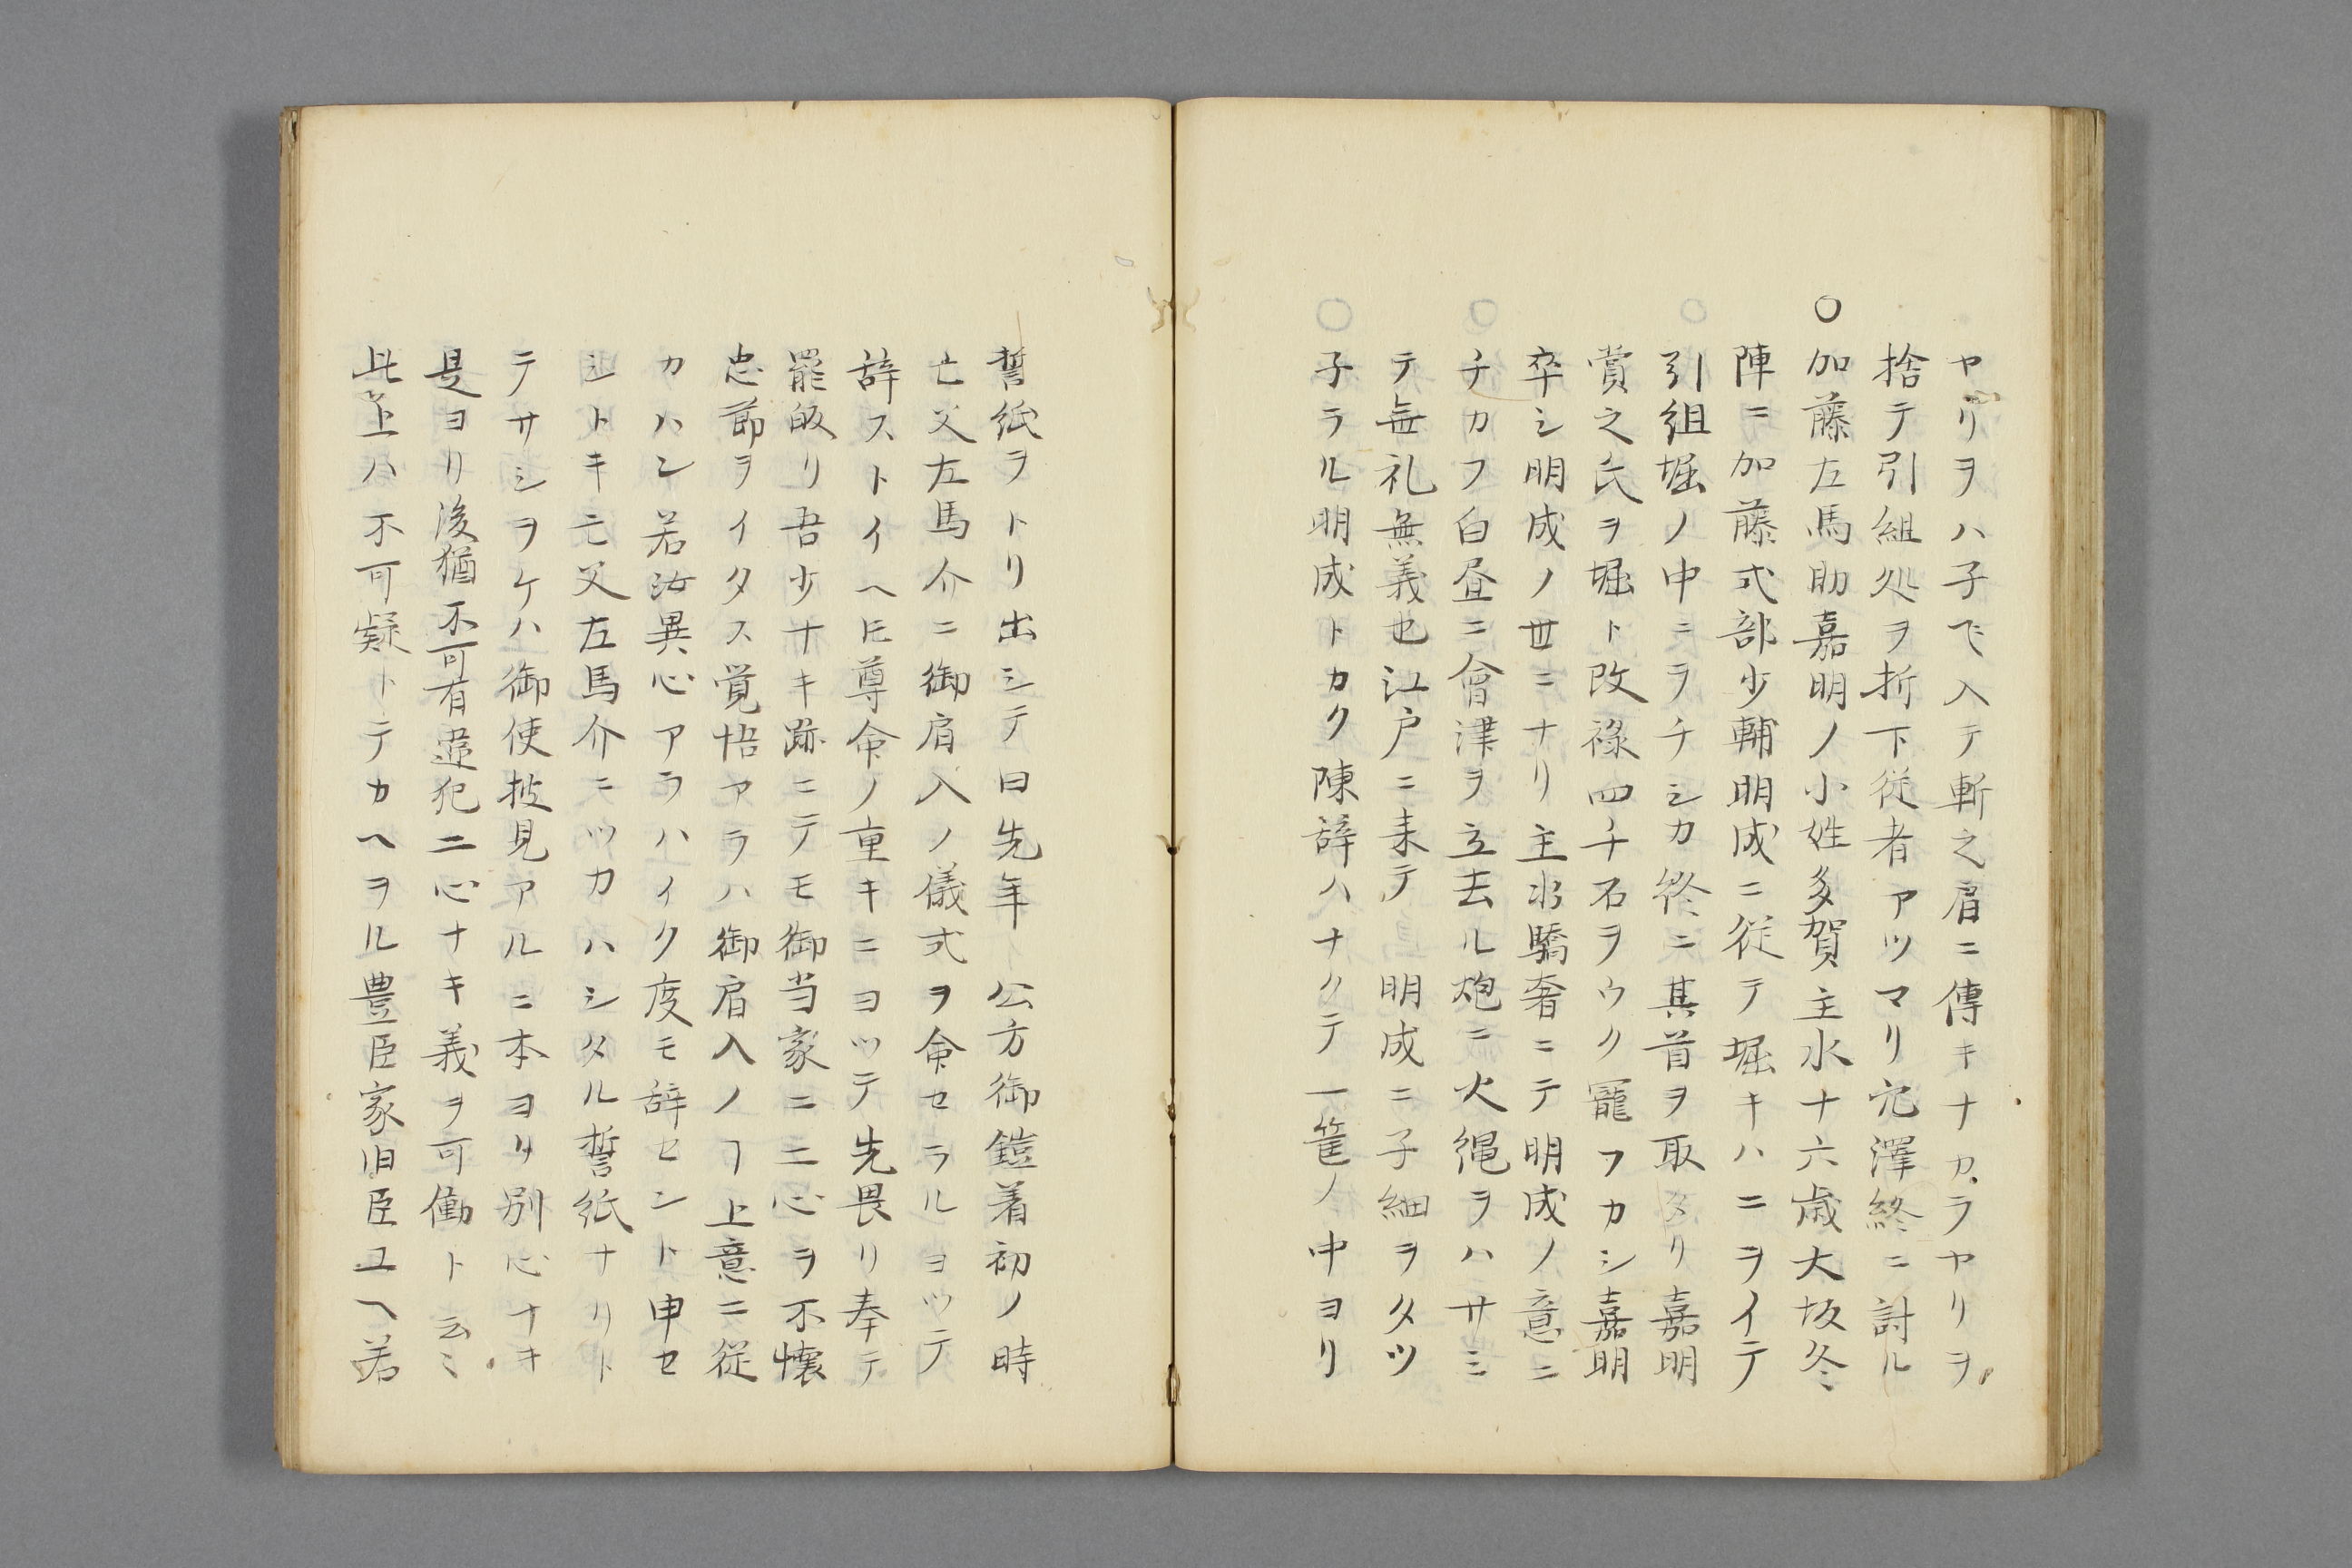 ヤリヲハ子デ入テ斬之肩ニ傳キナカラヤリヲ
捨テ引組処ヲ折下従者アツマリ沢終ニ討ル
○加藤左馬助嘉明ノ小姓多賀主水十六歳大坂冬
陣ニ加藤式部少輔明成ニ従テ堀キハニヲイテ
引組堀ノ中ニヲチシカ終ニ其首ヲ取タリ嘉明
賞之氏ヲ堀ト改禄四千石ヲウク寵フカシ嘉明
卒シ明成ノ世ニナリ主水驕奢ニテ明成ノ意ニ
チカフ白昼ニ會津ヲ立去ル炮ニ火縄ヲハサミ
テ無礼無義也江戸ニ来テ 明成ニ子細ヲタツ
子ラル明成トカク陳辞ハナクテ一筐ノ中ヨリ
誓紙ヲトリ出シテ曰先年 公方御鎧着初ノ時
亡父左馬介ニ御肩入ノ儀式ヲ命セラルヨツテ
辞ストイヘ𪜈尊命ノ重キニヨツテ先畏リ奉テ
罷皈リ吾少ナキ跡ニテモ御当家ニ二心ヲ不懐
忠節ヲイタス覚悟アラハ御肩入ノヿ上意ニ従
カハン若汝異心アラハイク度モ辞セント申セ
シトキ亡父左馬介ニツカハシタル誓紙ナリト
テサシヲケハ御使披見アルニ本ヨリ別心ナキ
是ヨリ後猶不可有違犯二心ナキ義ヲ可働ト云〻
此上ハ不可疑トテカヘヲル豊臣家旧臣ユヘ若